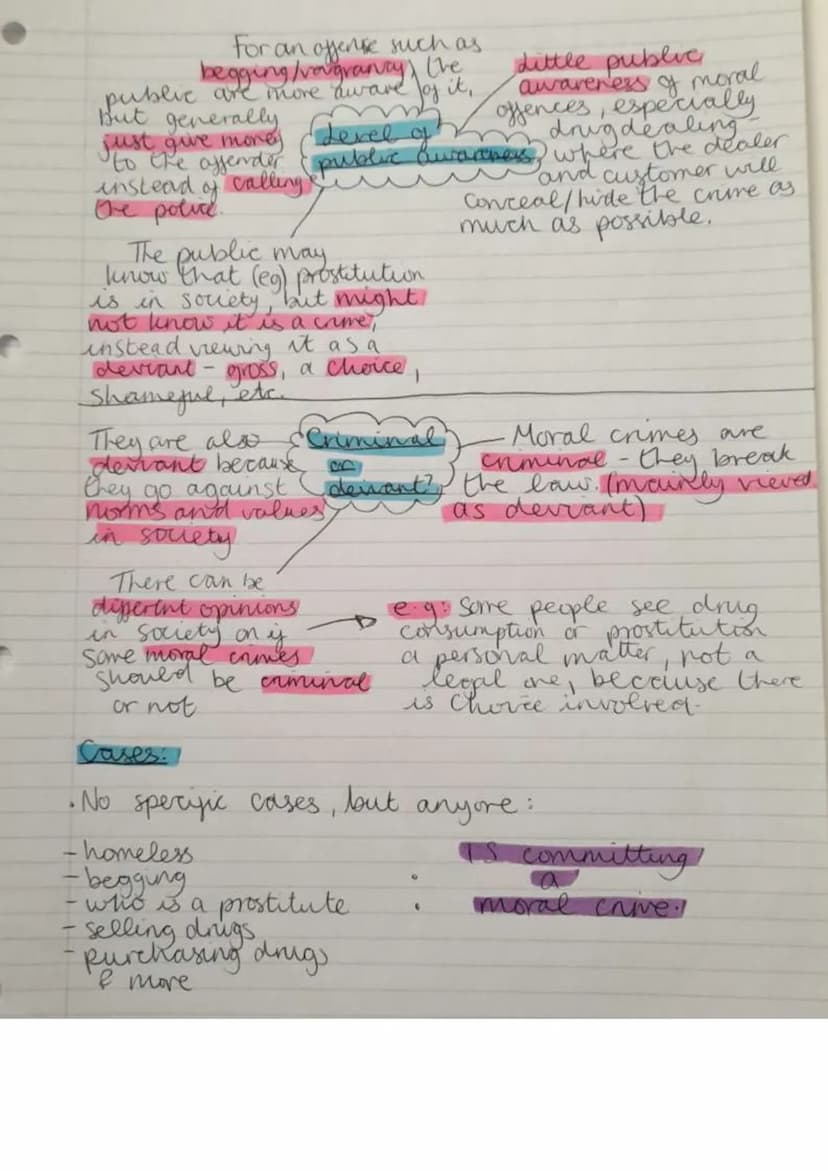 For an offense such as
begging/vagrancy, the
public are more aware of it,
but generally
just give money
to the offender
instead of calling
the police.
Level of
public awareness
Little public
awareness of moral
offences, especially
drug dealing -
where the dealer
and customer will
conceal/hide the crime as
much as possible.
The public may
know that (eg) prostitution
is in society, but might
not know it is a crime,
instead viewing it as a
deviant - gross, a choice,
shameful, etc.
They are also
deviant because
they go against
norms and values
in society
Criminal
or
deviant?
Moral crimes are
criminal - they break
the law. (mainly viewed
as deviant)
There can be
different opinions
in society on if
some moral crimes
should be criminal
or not
e.g: Some people see drug
consumption or prostitution
a personal matter, not a
legal one, because there
is choice involved.
Cases:
• No specific cases, but anyone:
- homeless
- begging
- who is a prostitute
- selling drugs
- purchasing drugs
& more
is committing
a
moral crime.